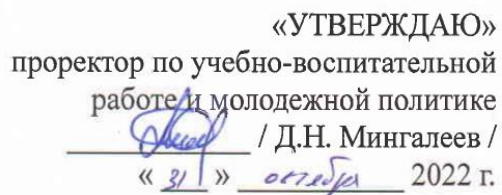 «УТВЕРЖДАЮ»
проректор по учебно-воспитательной
работе и молодежной политике
/ Д.Н. Мингалеев /
« 31 » октября 2022 г.